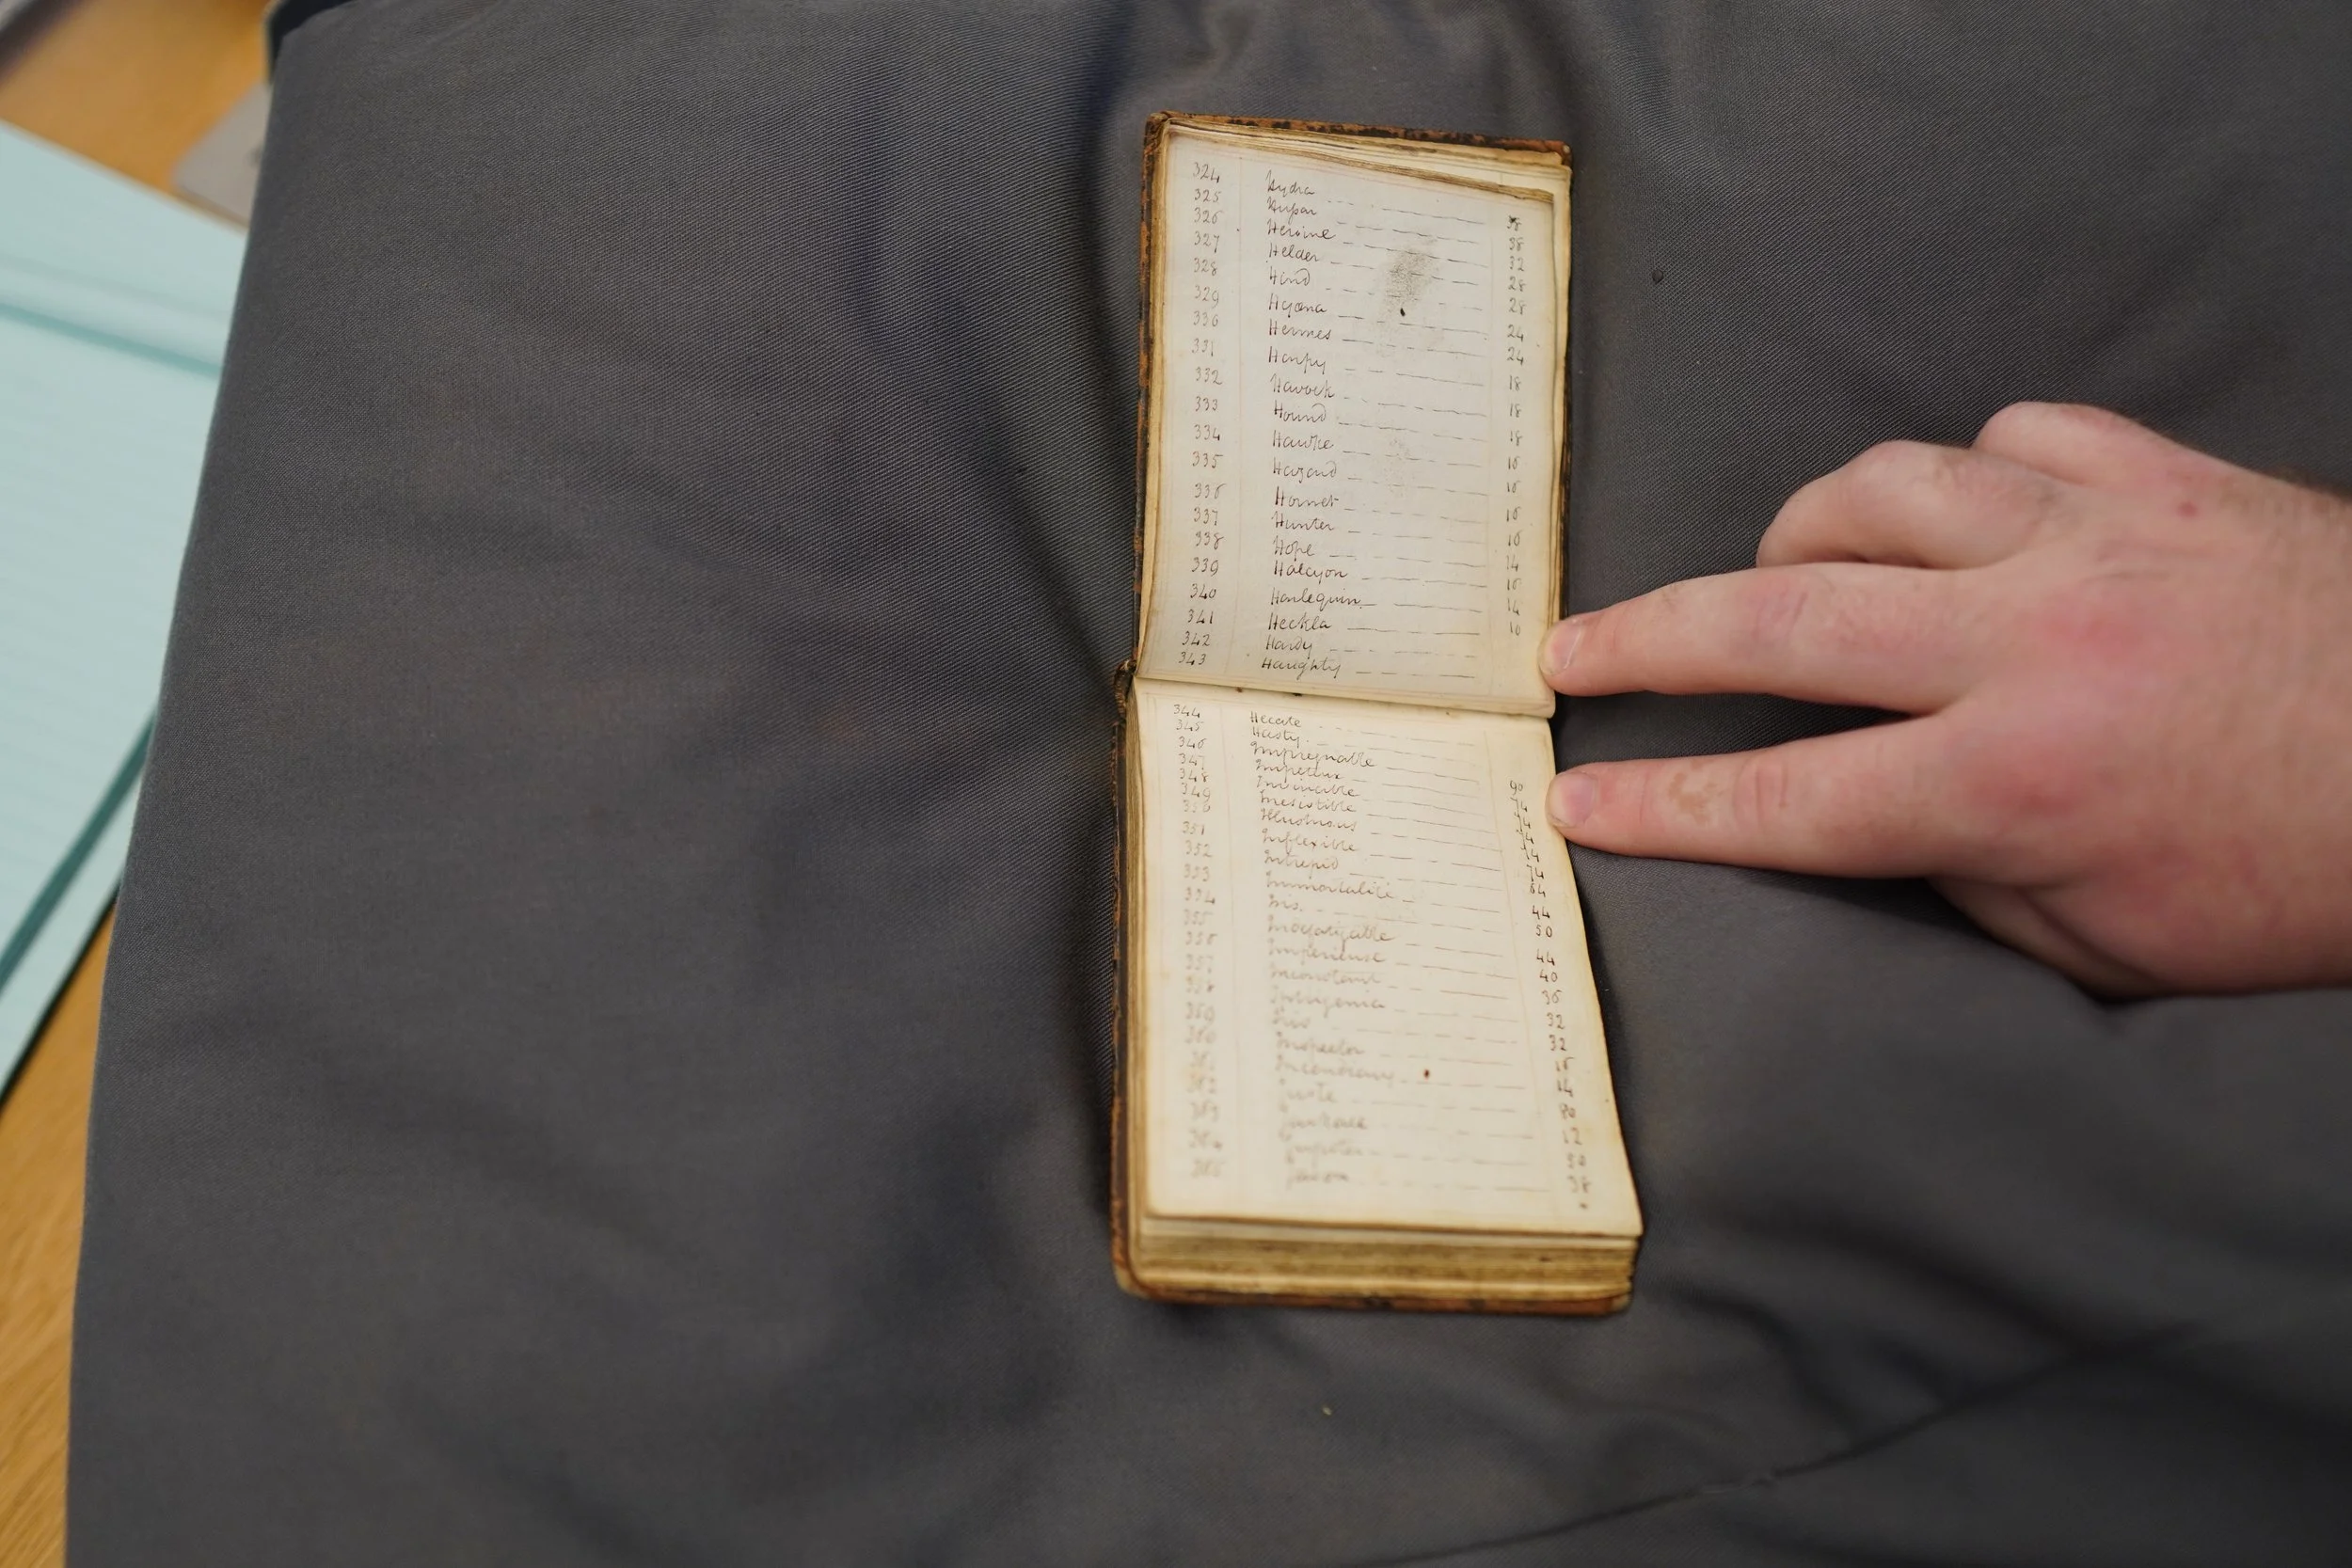 324 Hydra 38
325 Huſsar 38
326 Heroine 32
327 Helder 28
328 Hind 28
329 Hyæna 24
330 Hermes 24
331 Harpy 18
332 Havock 18
333 Hound 18
334 Hawke 16
335 Hazard 16
336 Hornet 16
337 Hunter 16
338 Hope 14
339 Halcyon 16
340 Harlequin 14
341 Heckla 10
342 Hardy
343 Haughty
344 Hecate
345 Hasty
346 Impregnable 90
347 Impetuux 74
348 Invincible 74
349 Irresistible 74
350 Illustrious 74
351 Inflexible 74
352 Intrepid 64
353 Immortalité 44
354 Isis 50
355 Indefatigable 44
356 Imperieuse 40
357 Inconstant 36
358 Iphigenia 32
359 Iris 32
360 Inspector 16
361 Incendiary 14
362 Juste 80
363 12
364 Jupiter 50
365 Jason 38